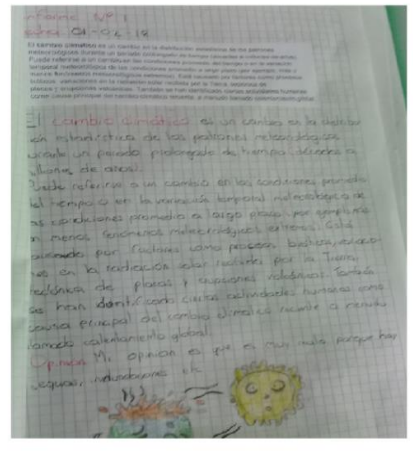 Informe Nº 1
Fecha 01-04-19
El cambio climático es un cambio en la distribución estadística de los patrones
meteorológicos durante un periodo prolongado de tiempo (décadas a millones de años).
Puede referirse a un cambio en las condiciones promedio del tiempo o en la variación
temporal meteorológica de las condiciones promedio a largo plazo (por ejemplo, más o
menos fenómenos meteorológicos extremos). Está causado por factores como procesos
bióticos, variaciones en la radiación solar recibida por la Tierra, tectónica de
placas y erupciones volcánicas. También se han identificado ciertas actividades humanas
como causa principal del cambio climático reciente, a menudo llamado calentamiento global.
El cambio climático es un cambio en la distribu
ión estadística de los patrones meteorológicos
urante un periodo prolongado de tiempo (décadas a
illones de años).
Puede referirse a un cambio en las condiciones promedio
del tiempo o en la variación temporal meteorológica de
as condiciones promedio a largo plazo (por ejemplo, más
o menos fenómenos meteorológicos extremos). Está
causado por factores como procesos bióticos, variacio
nes en la radiación solar recibida por la Tierra,
tectónica de placas y erupciones volcánicas. También
se han identificado ciertas actividades humanas como
causa principal del cambio climático reciente a menudo
lamado calentamiento global.
Opinion Mi opinion es que es muy malo porque hay
sequias, inundaciones etc